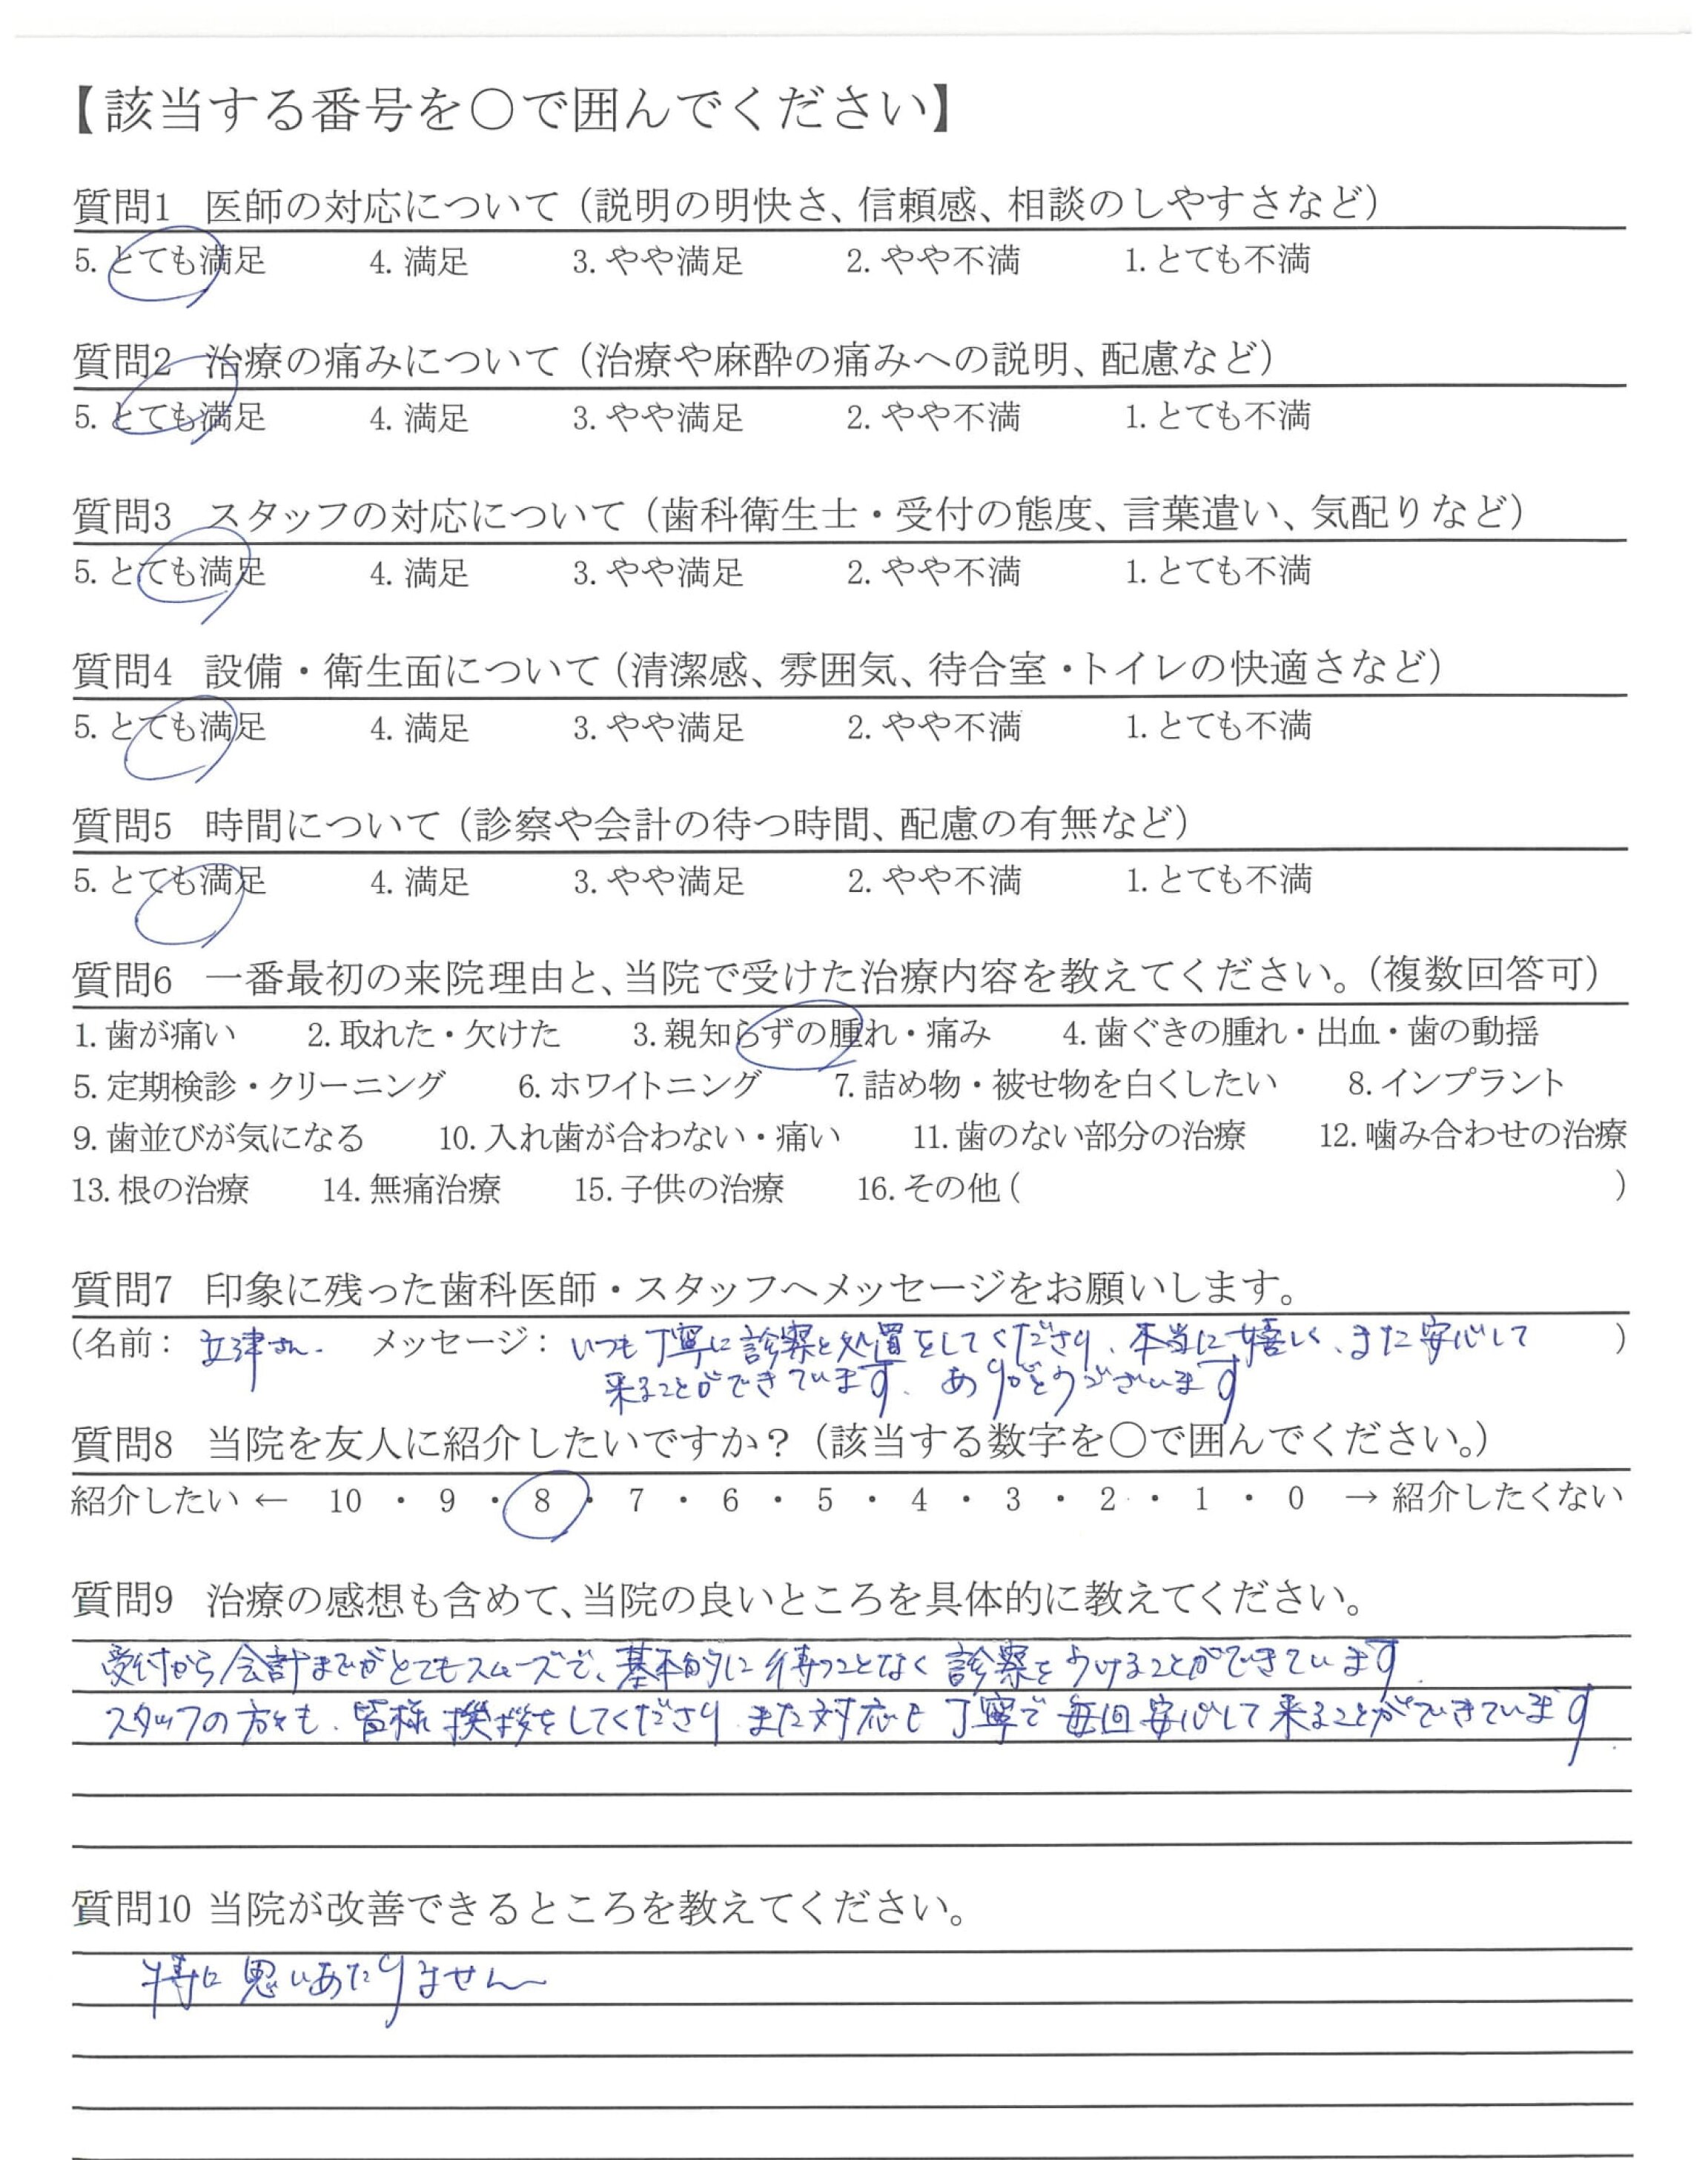 【該当する番号を〇で囲んでください】
質問1 医師の対応について（説明の明快さ、信頼感、相談のしやすさなど）
5. とても満足 4. 満足 3. やや満足 2. やや不満 1. とても不満
質問2 治療の痛みについて（治療や麻酔の痛みへの説明、配慮など）
5. とても満足 4. 満足 3. やや満足 2. やや不満 1. とても不満
質問3 スタッフの対応について（歯科衛生士・受付の態度、言葉遣い、気配りなど）
5. とても満足 4. 満足 3. やや満足 2. やや不満 1. とても不満
質問4 設備・衛生面について（清潔感、雰囲気、待合室・トイレの快適さなど）
5. とても満足 4. 満足 3. やや満足 2. やや不満 1. とても不満
質問5 時間について（診察や会計の待つ時間、配慮の有無など）
5. とても満足 4. 満足 3. やや満足 2. やや不満 1. とても不満
質問6 一番最初の来院理由と、当院で受けた治療内容を教えてください。（複数回答可）
1. 歯が痛い 2. 取れた・欠けた 3. 親知らずの腫れ・痛み 4. 歯ぐきの腫れ・出血・歯の動揺
5. 定期検診・クリーニング 6. ホワイトニング 7. 詰め物・被せ物を白くしたい 8. インプラント
9. 歯並びが気になる 10. 入れ歯が合わない・痛い 11. 歯のない部分の治療 12. 噛み合わせの治療
13. 根の治療 14. 無痛治療 15. 子供の治療 16. その他（ ）
質問7 印象に残った歯科医師・スタッフへメッセージをお願いします。
（名前： 立津さん. メッセージ： いつも丁寧に診察と処置をしてくださり、本当に嬉しく、また安心して ）
来ることができています。ありがとうございます
質問8 当院を友人に紹介したいですか？（該当する数字を〇で囲んでください。）
紹介したい ← 10 ・ 9 ・ 8 ・ 7 ・ 6 ・ 5 ・ 4 ・ 3 ・ 2 ・ 1 ・ 0 → 紹介したくない
質問9 治療の感想も含めて、当院の良いところを具体的に教えてください。
受付から会計までがとてもスムーズで、基本的に待つことなく診察をうけることができています.
スタッフの方々も、皆様挨拶をしてくださり、また対応も丁寧で毎回安心して来ることができています.
質問10 当院が改善できるところを教えてください。
特に思いあたりません